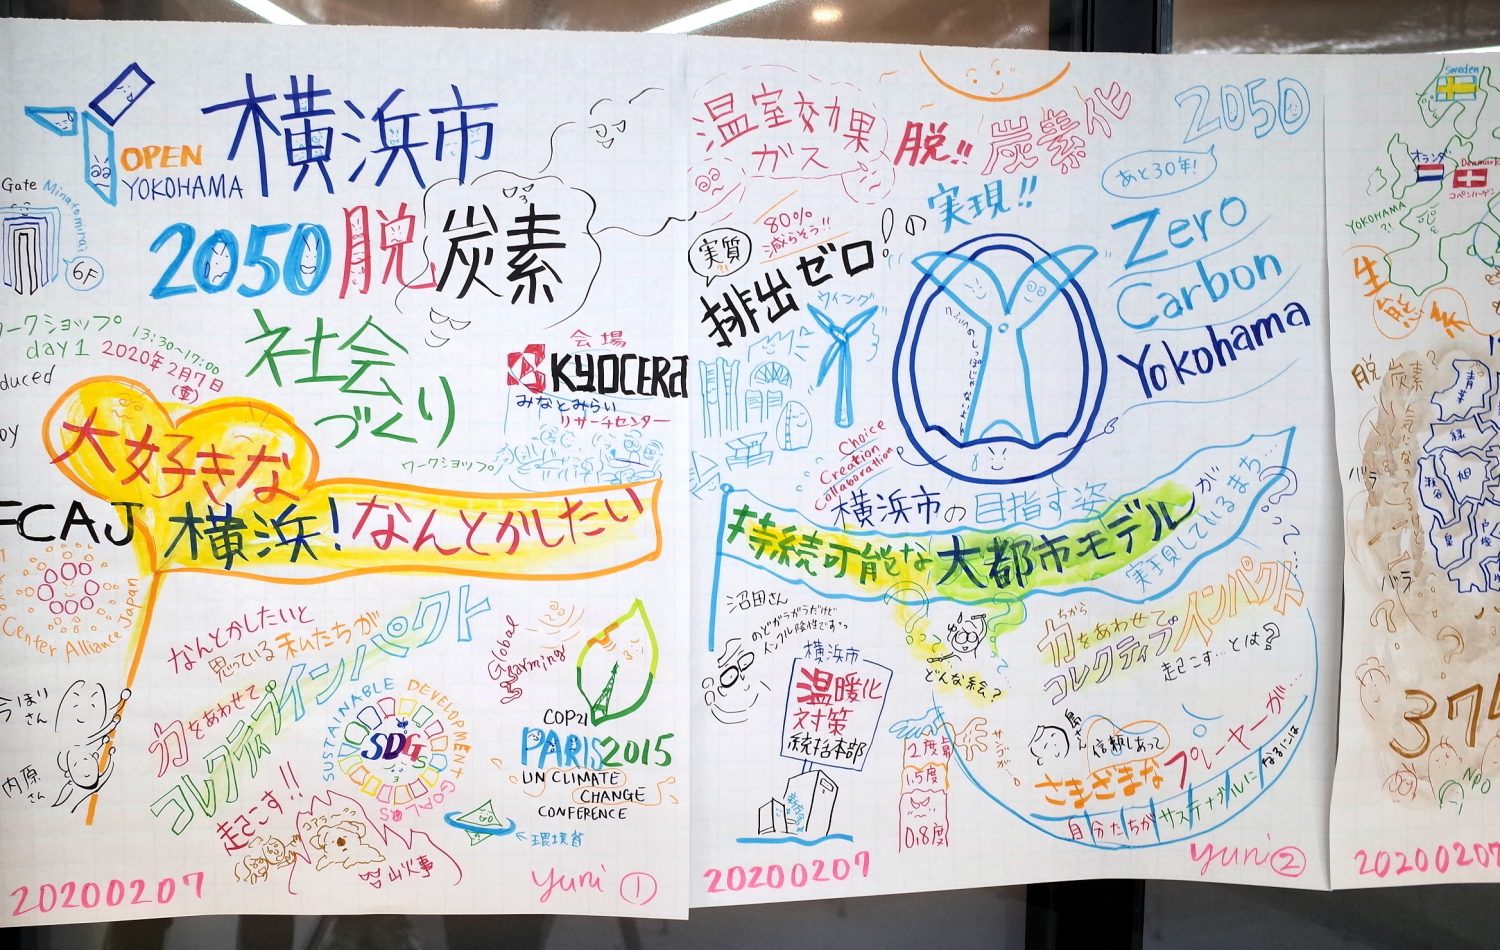 OPEN
YOKOHAMA
横浜市
Gate
Minatomirai
6F
2050脱炭素
社会
づくり
ワークショップ
day1
13:30~17:00
2020年2月7日
(金)
会場
KYOCERA
みなとみらい
リサーチセンター
ワークショップ
大好きな
横浜!なんとかしたい
FCAJ
Center Alliance Japan
なんとかしたいと
思っている私たちが
力をあわせて
コレクティブインパクト
起こす!!
Global
Warming
SUSTAINABLE DEVELOPMENT GOALS
SDGs
COP21
PARIS2015
UN CLIMATE
CHANGE
CONFERENCE
環境省
山火事
内原
さん
20200207
yuri ①
温室効果
ガス
脱!!炭素化
2050
あと30年!
実現!!
の
80%
減らそう!!
実質
排出ゼロ!
ウィング
Zero
Carbon
Yokohama
Choice
Creation
Collaboration
横浜市の目指す姿
持続可能な大都市モデルが
実現しているまち…
沼田さん
のどガラガラだけど
インフル陰性です
横浜市
温暖化
対策
統括本部
どんな絵?
ちから
力をあわせて
コレクティブインパクト
起こす…とは?
2度
1.5度
0.8度
島さん
信頼しあって
さまざまなプレーヤーが…
自分たちがサステナブルになるには
20200207
yuri ②
Sweden
オランダ
Denmark
コペンハーゲン
YOKOHAMA
?!
生
態
系
脱炭素?
気になってる
バラ
バラ
青葉
緑
旭
瀬谷
泉
374
NPO
20200207